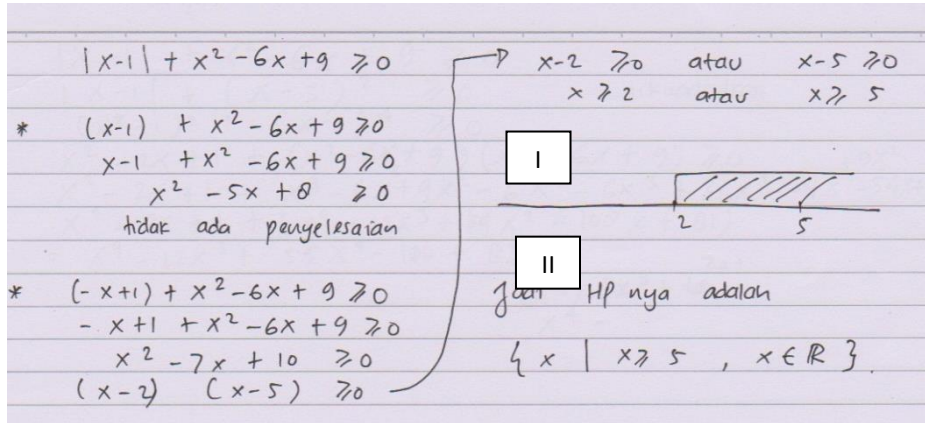 |x-1| + x² - 6x + 9 ⩾ 0
* (x-1) + x² - 6x + 9 ⩾ 0
x-1 + x² - 6x + 9 ⩾ 0
x² - 5x + 8 ⩾ 0
tidak ada penyelesaian
* (-x+1) + x² - 6x + 9 ⩾ 0
- x+1 + x² - 6x + 9 ⩾ 0
x² - 7x + 10 ⩾ 0
(x-2) (x-5) ⩾ 0
x-2 ⩾ 0 atau x-5 ⩾ 0
x ⩾ 2 atau x ⩾ 5
I
2 5
II
Jadi HP nya adalah
{ x | x ⩾ 5 , x ∈ ℝ }.